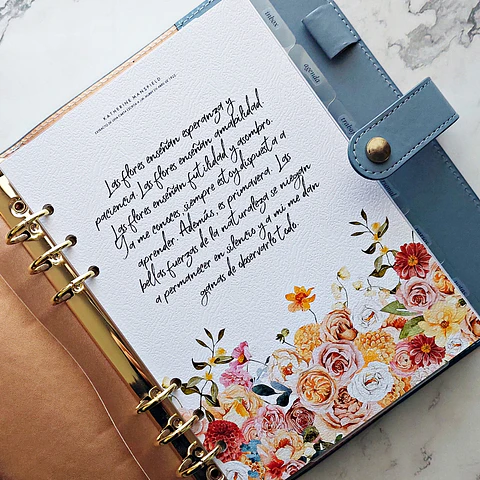 KATHERINE MANSFIELD
Las flores enseñan esperanza y
paciencia. Las flores enseñan amabilidad.
Las flores enseñan futilidad y asombro.
Ya me conoces, siempre estoy dispuesta a
aprender. Además, es primavera. Las
bellas fuerzas de la naturaleza se niegan
a permanecer en silencio y a mí me dan
ganas de observarlo todo.
inbox
agenda